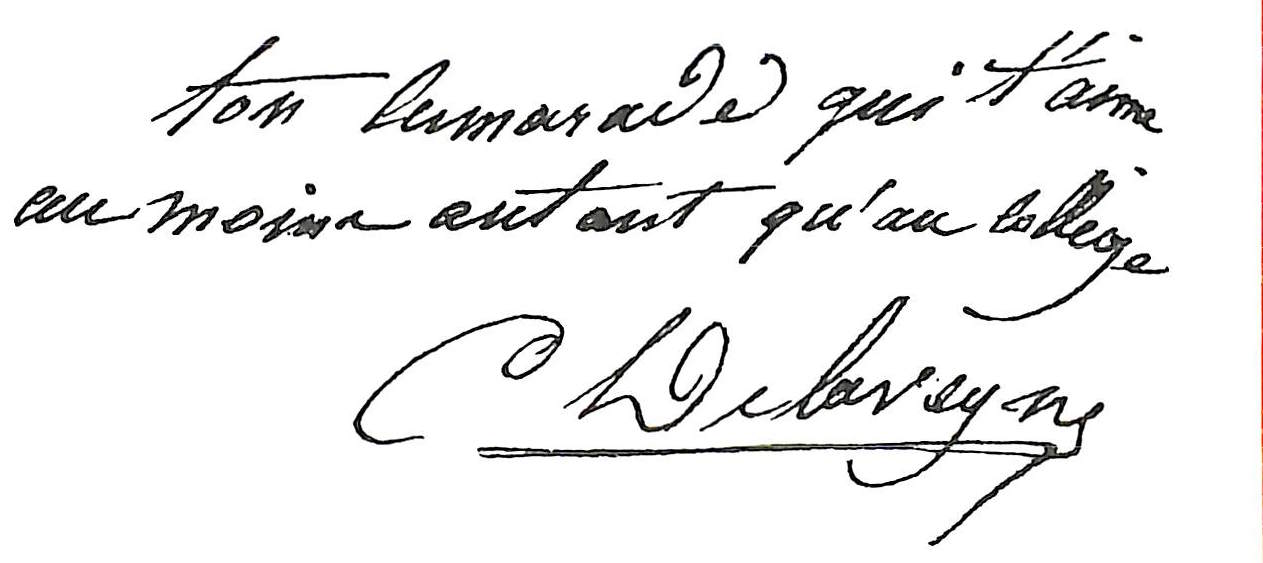 ton camarade qui t'aime
au moins autant qu'au collège
C Delavigne